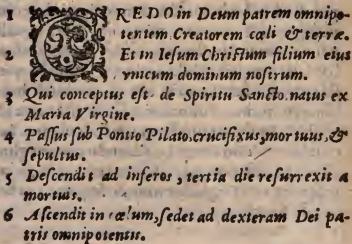 1 CREDO in Deum patrem omnipo-
tentem. Creatorem cœli & terræ.
2 Et in Iesum Christum filium eius
vnicum dominum nostrum.
3 Qui conceptus est de Spiritu Sancto. natus ex
Maria Virgine.
4 Passus sub Pontio Pilato, crucifixus, mortuus, &
sepultus.
5 Descendit ad inferos, tertia die resurrexit a
mortuis.
6 Ascendit in cœlum, sedet ad dexteram Dei pa-
tris omnipotentis.